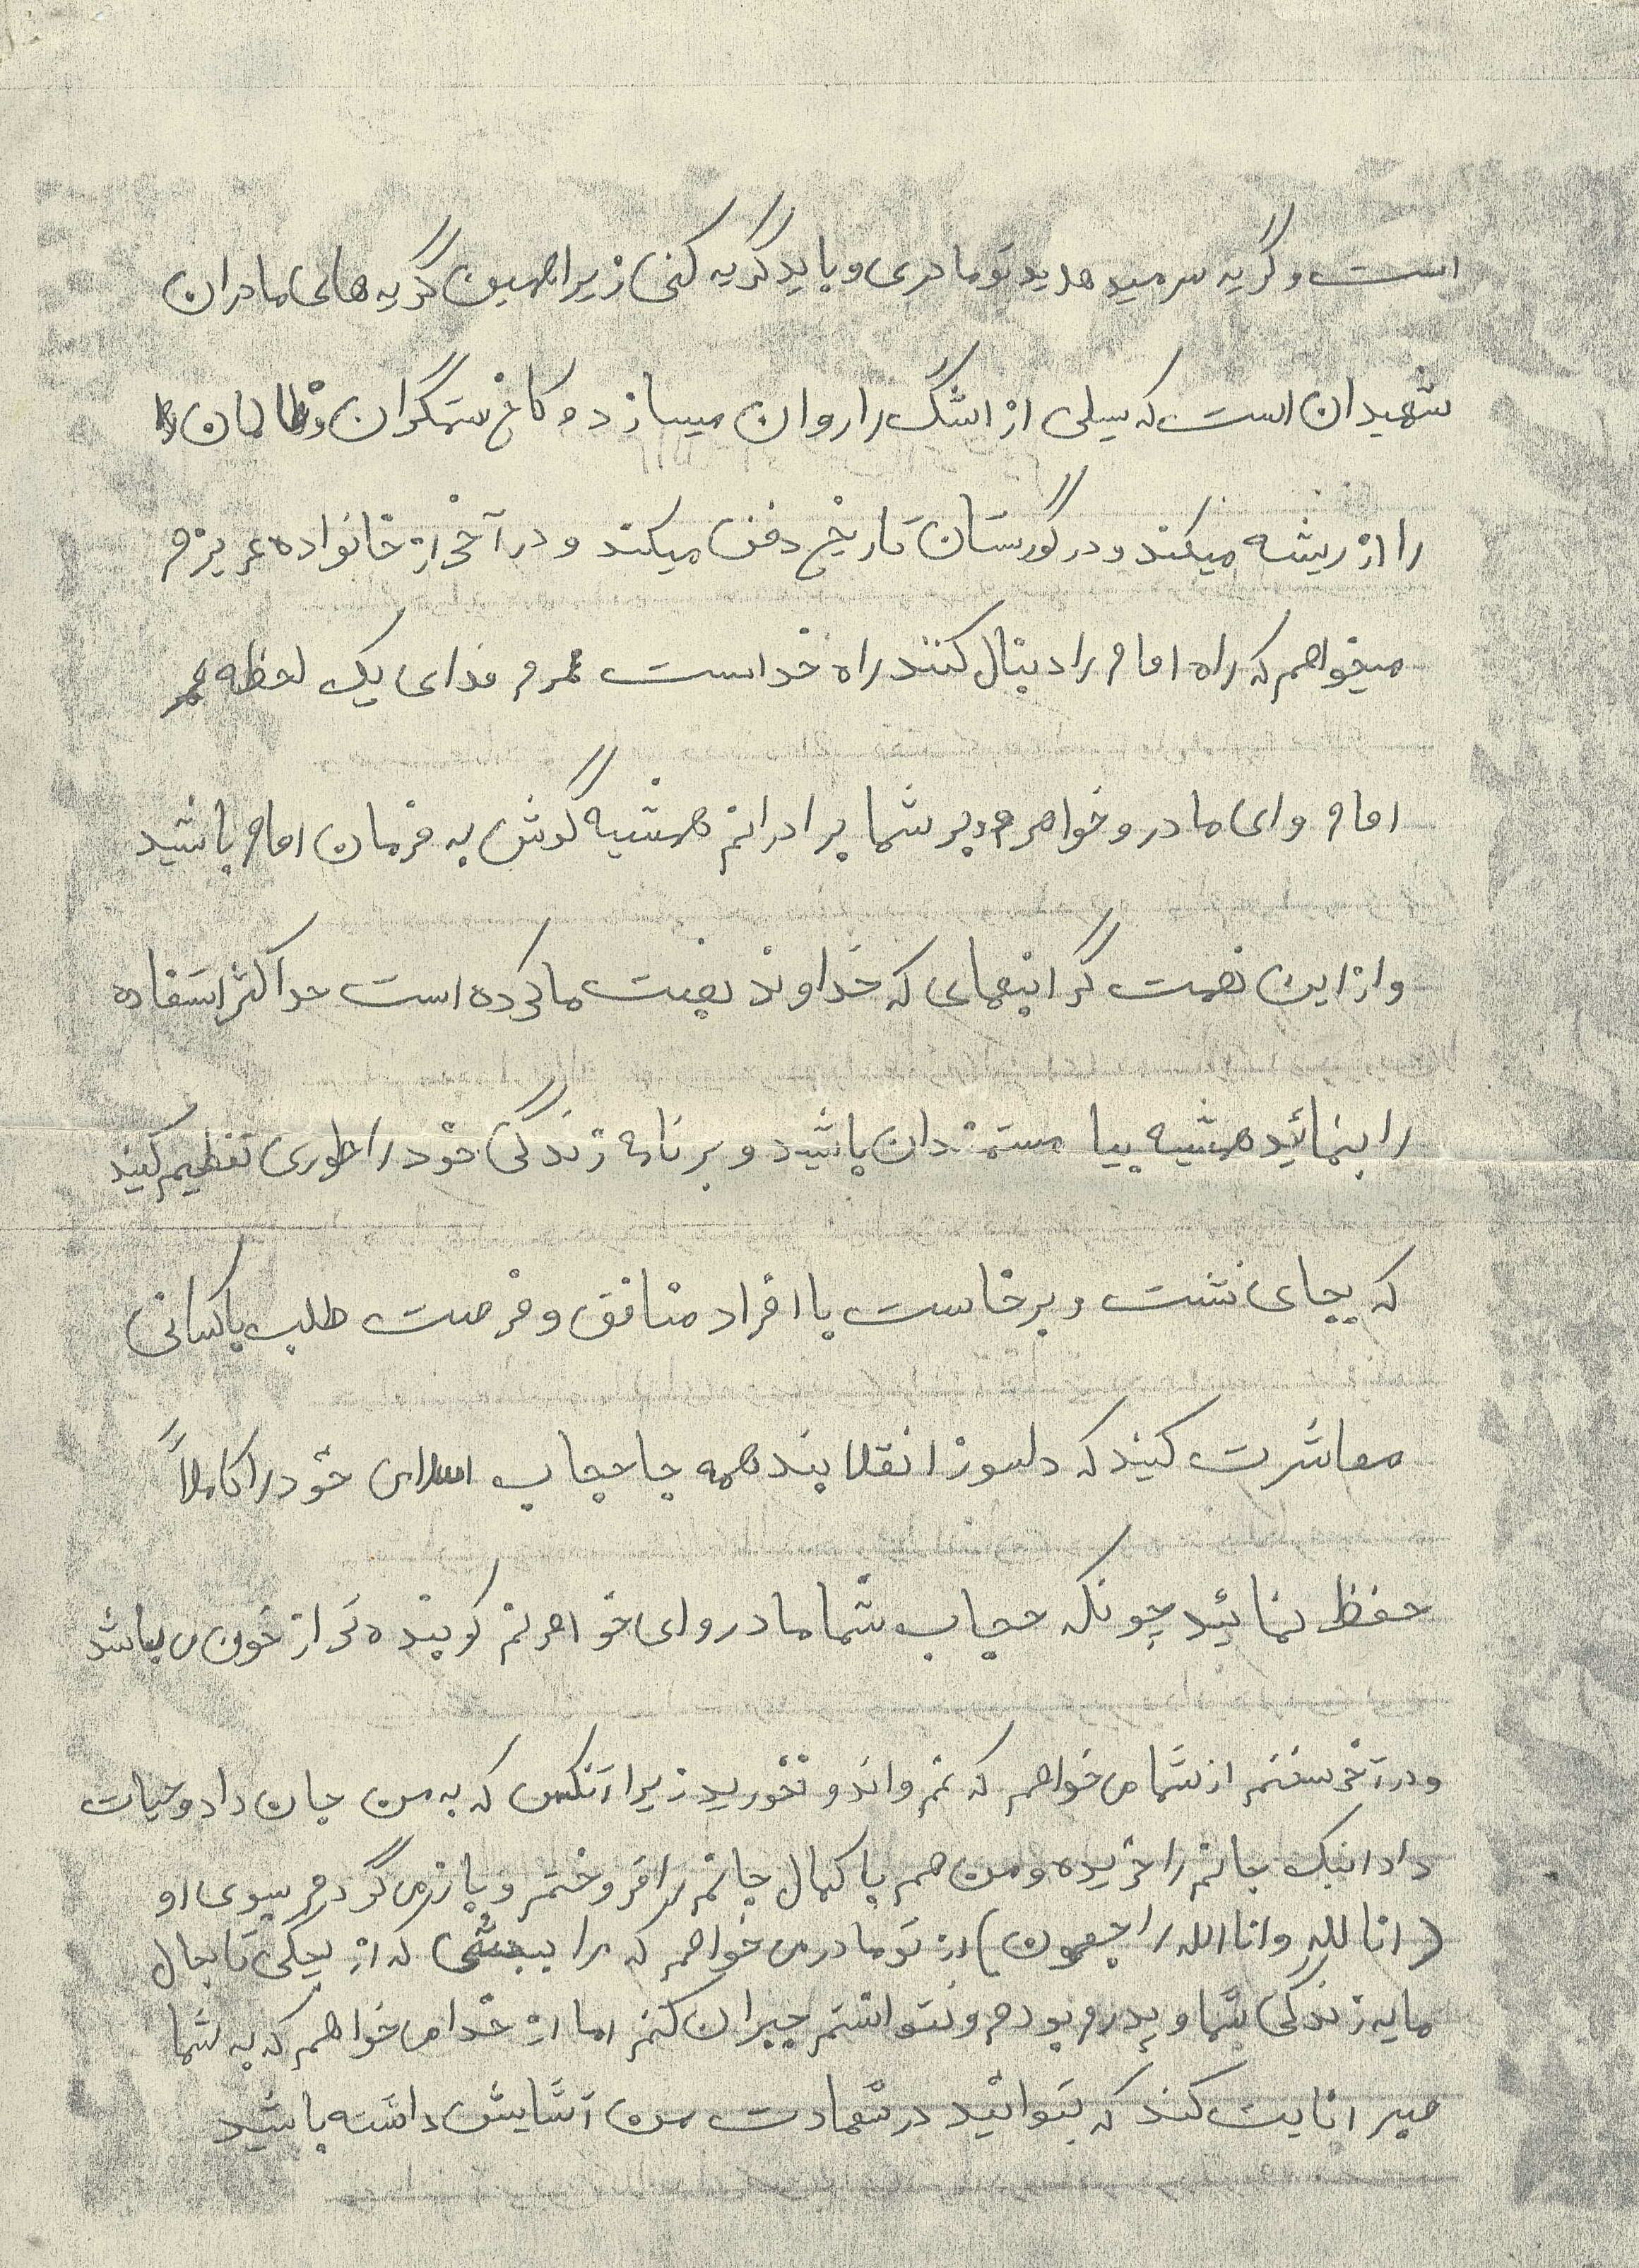 است و گریه سر میدهدید تو مادری و باید گریه کنی زیرا همین گریه های مادران
شهیدان است که سیلی از اشگ را روان میسازد و کاخ ستمگران و ظالمان را
را از ریشه میکند و در گورستان تاریخ دفن میکند و در آخر از خانواده عزیزم
میخواهم که راه امام را دنبال کنند راه خداست عمرم فدای یک لحظه عمر
امام وای مادر و خواهرم و پر شما برادرانم همشیه گوش به فرمان امام باشید
و از این نعمت گرانبهای که خداوند نصبت ما کرده است حداکثر استفاده
را بنمائید همشیه بیا مستمندان باشید و برنامه زندگی خود را طوری تنظیم کنید
که بجای نشت و برخاست با افراد منافق و فرصت طلب با کسانی
معاشرت کنید که دلسوز انقلابند همه جا حجاب اسلامی خود را کاملاً
حفظ نمائید چونکه حجاب شما مادر و ای خواهرنم کوبنده تر از خون می باشد
و در آخر سخنم از شما می خواهم که غم و اندو نخورید زیرا آنکس که به من جان داد و حیات
داد اینک جانم را خریده و من هم با کمال جانم را فروختم و باز می گردم بسوی او
(انا لله وانا الله راجعون) از تو مادر می خواهم که مرا ببخشی که از بچگی تا بحال
مایه زندگی شما و پدرم بودم و نتوانستم جبران کنم اما از خدا می خواهم که به شما
صبر انایت کند که بتوانید در شهادت من آشایش داشته باشید